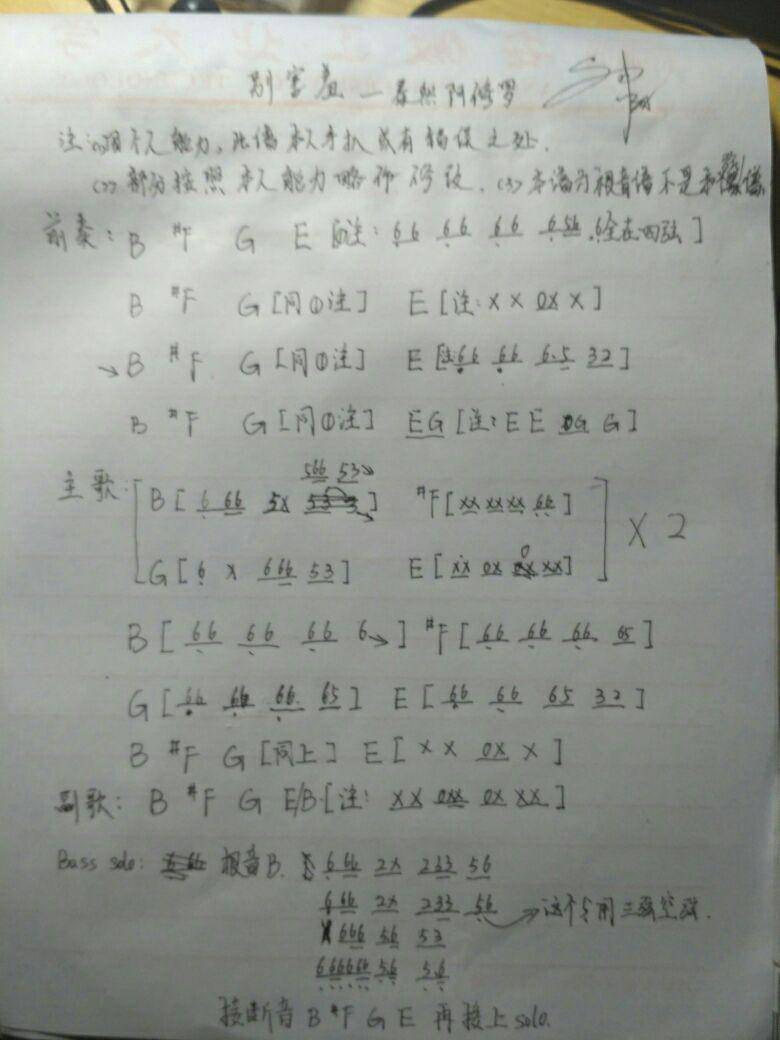 别害羞 — 春秋阿修罗
注:(1)因个人能力,此谱本人手扒或有错误之处.
(2)部分按照本人能力略作修改.(3)本谱为根音谱不是和弦谱.
前奏: B #F G E [①注: 66 66 66 6 56 .6全在四弦]
B #F G [同①注] E [注: X X 0X X]
→ B #F G [同①注] E [注: 66 66 6.5 32]
B #F G [同①注] EG [注: E E 0G G]
566 53
主歌: B [6 66 5X 53 3] #F [XX XX XX 66]
X 2
G [6 X 666 53] E [XX 0X XX]
B [66 66 66 6→] #F [66 66 66 65]
G [66 66 66 65] E [66 66 65 32]
B #F G [同上] E [X X 0X X]
副歌: B #F G E/B [注: XX 0XX 0X XX]
Bass solo: 根音B. 6 66 2X 233 56
6 66 2X 233 56 → 这个5用三弦空弦.
X 666 56 53
666666 56 56
接断音 B #F G E 再接上solo.